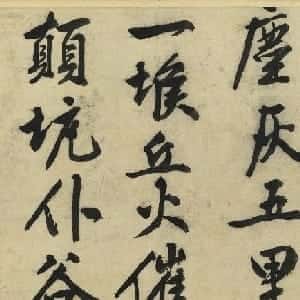 塵灰五里
一堠丘火催
顛坑仆谷